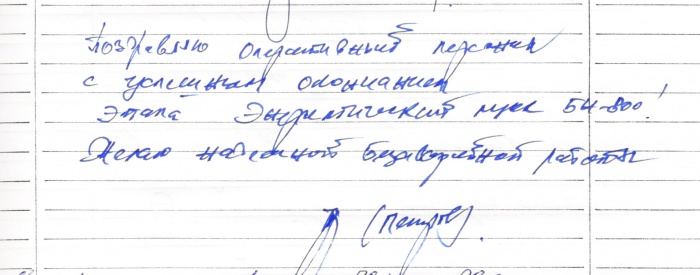 Поздравляю оперативный персонал
с успешным окончанием
этапа Энергетический пуск БН-800!
Желаю надежной безаварийной работы
(Петров).